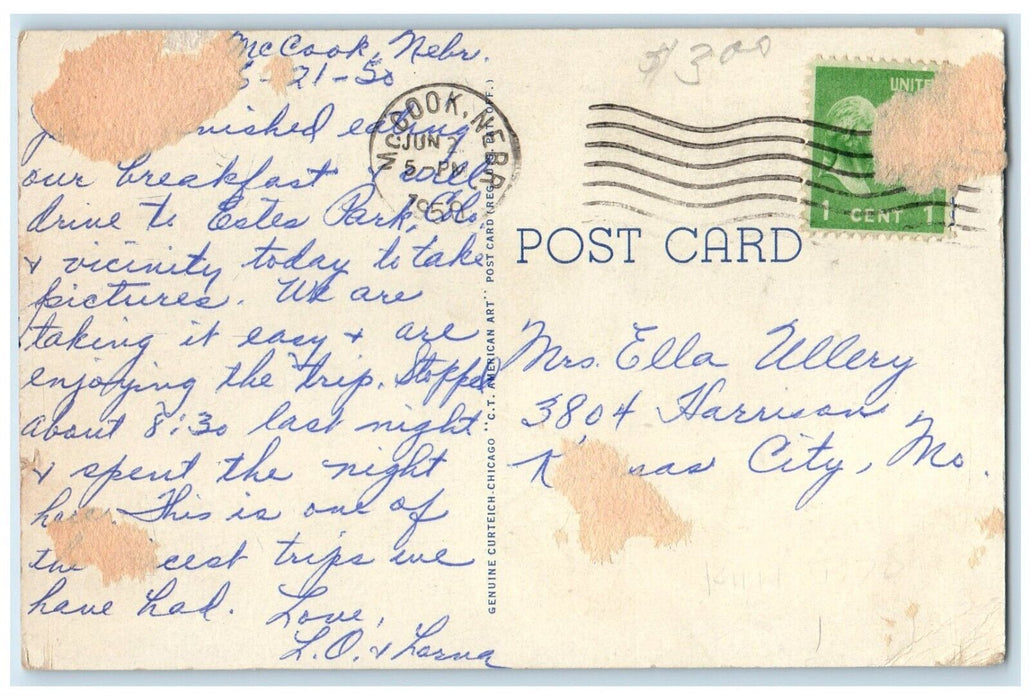 McCook, Nebr.
6-21-50
finished eating
our breakfast & will
drive to Estes Park, Colo.
& vicinity today to take
pictures. We are
taking it easy & are
enjoying the trip. Stopped
about 8:30 last night
& spent the night
here. This is one of
the nicest trips we
have had. Love,
L.O. & Lorna
MCCOOK, NEBR.
JUN
5 PM
1950
GENUINE CURTEICH-CHICAGO "C.T. AMERICAN ART" POST CARD (REG. U.S. PAT. OFF.)
$3.00
UNITE
1 CENT 1
POST CARD
Mrs. Ella Ullery
3804 Harrison
Kansas City, Mo.